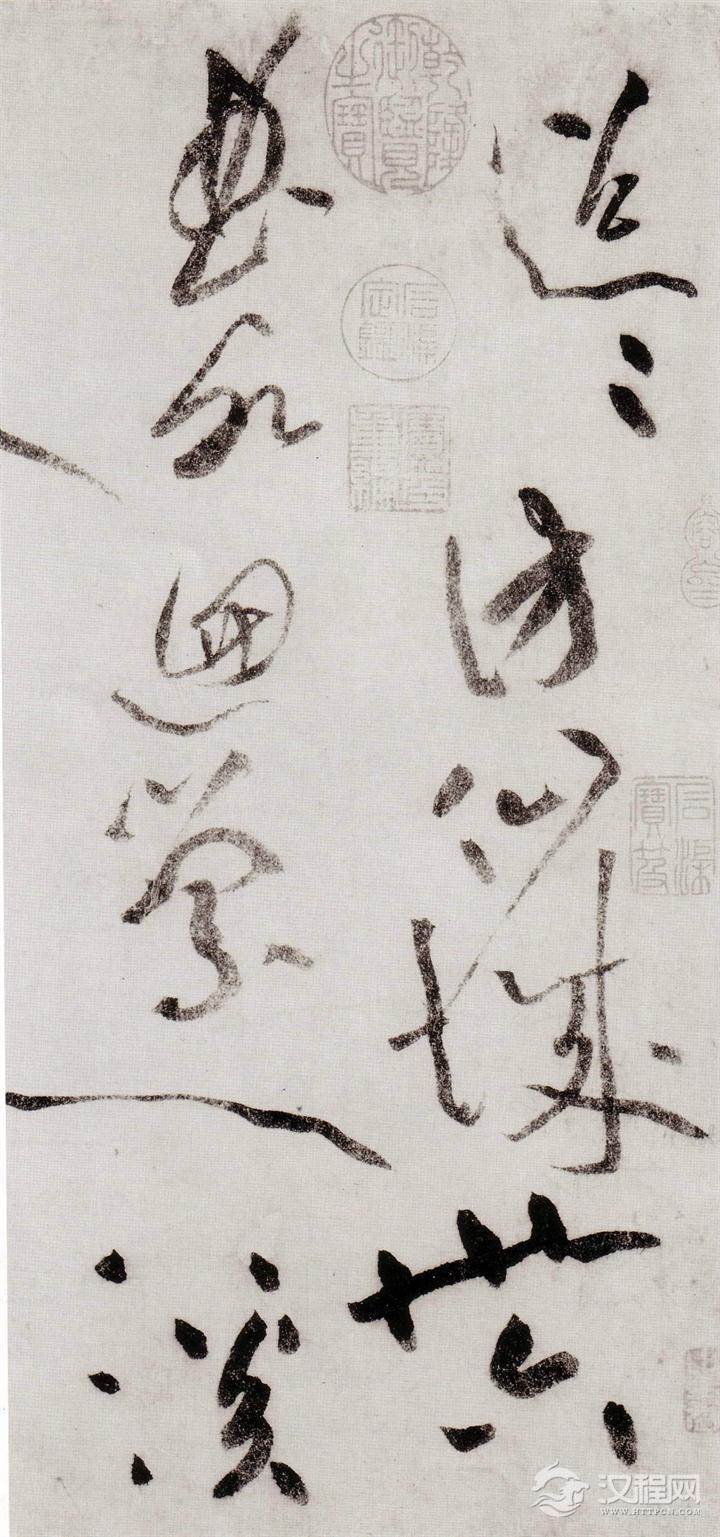 迢〻訪仙城卅六
曲水迴縈一溪
乾隆御覽之寶
石渠定鑑
寶笈重編
石渠寶笈
汉程网
WWW.HTTPCN.COM